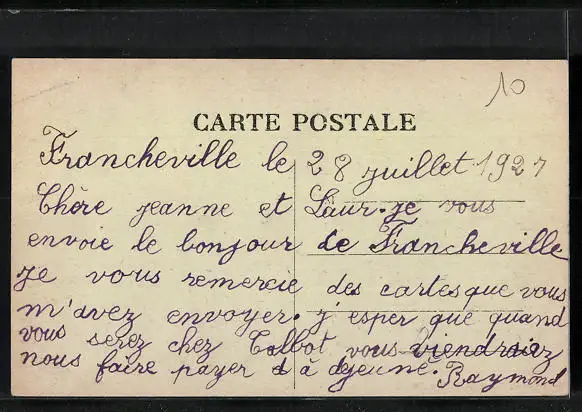 10
CARTE POSTALE
Francheville le 28 juillet 1927
Chère jeanne et Laur. je vous
envoie le bonjour de Francheville
je vous remercie des cartes que vous
m'avez envoyer. j'esper que quand
vous serez chez Talbot vous viendraiz
nous faire payer à dejeuné.
Raymond